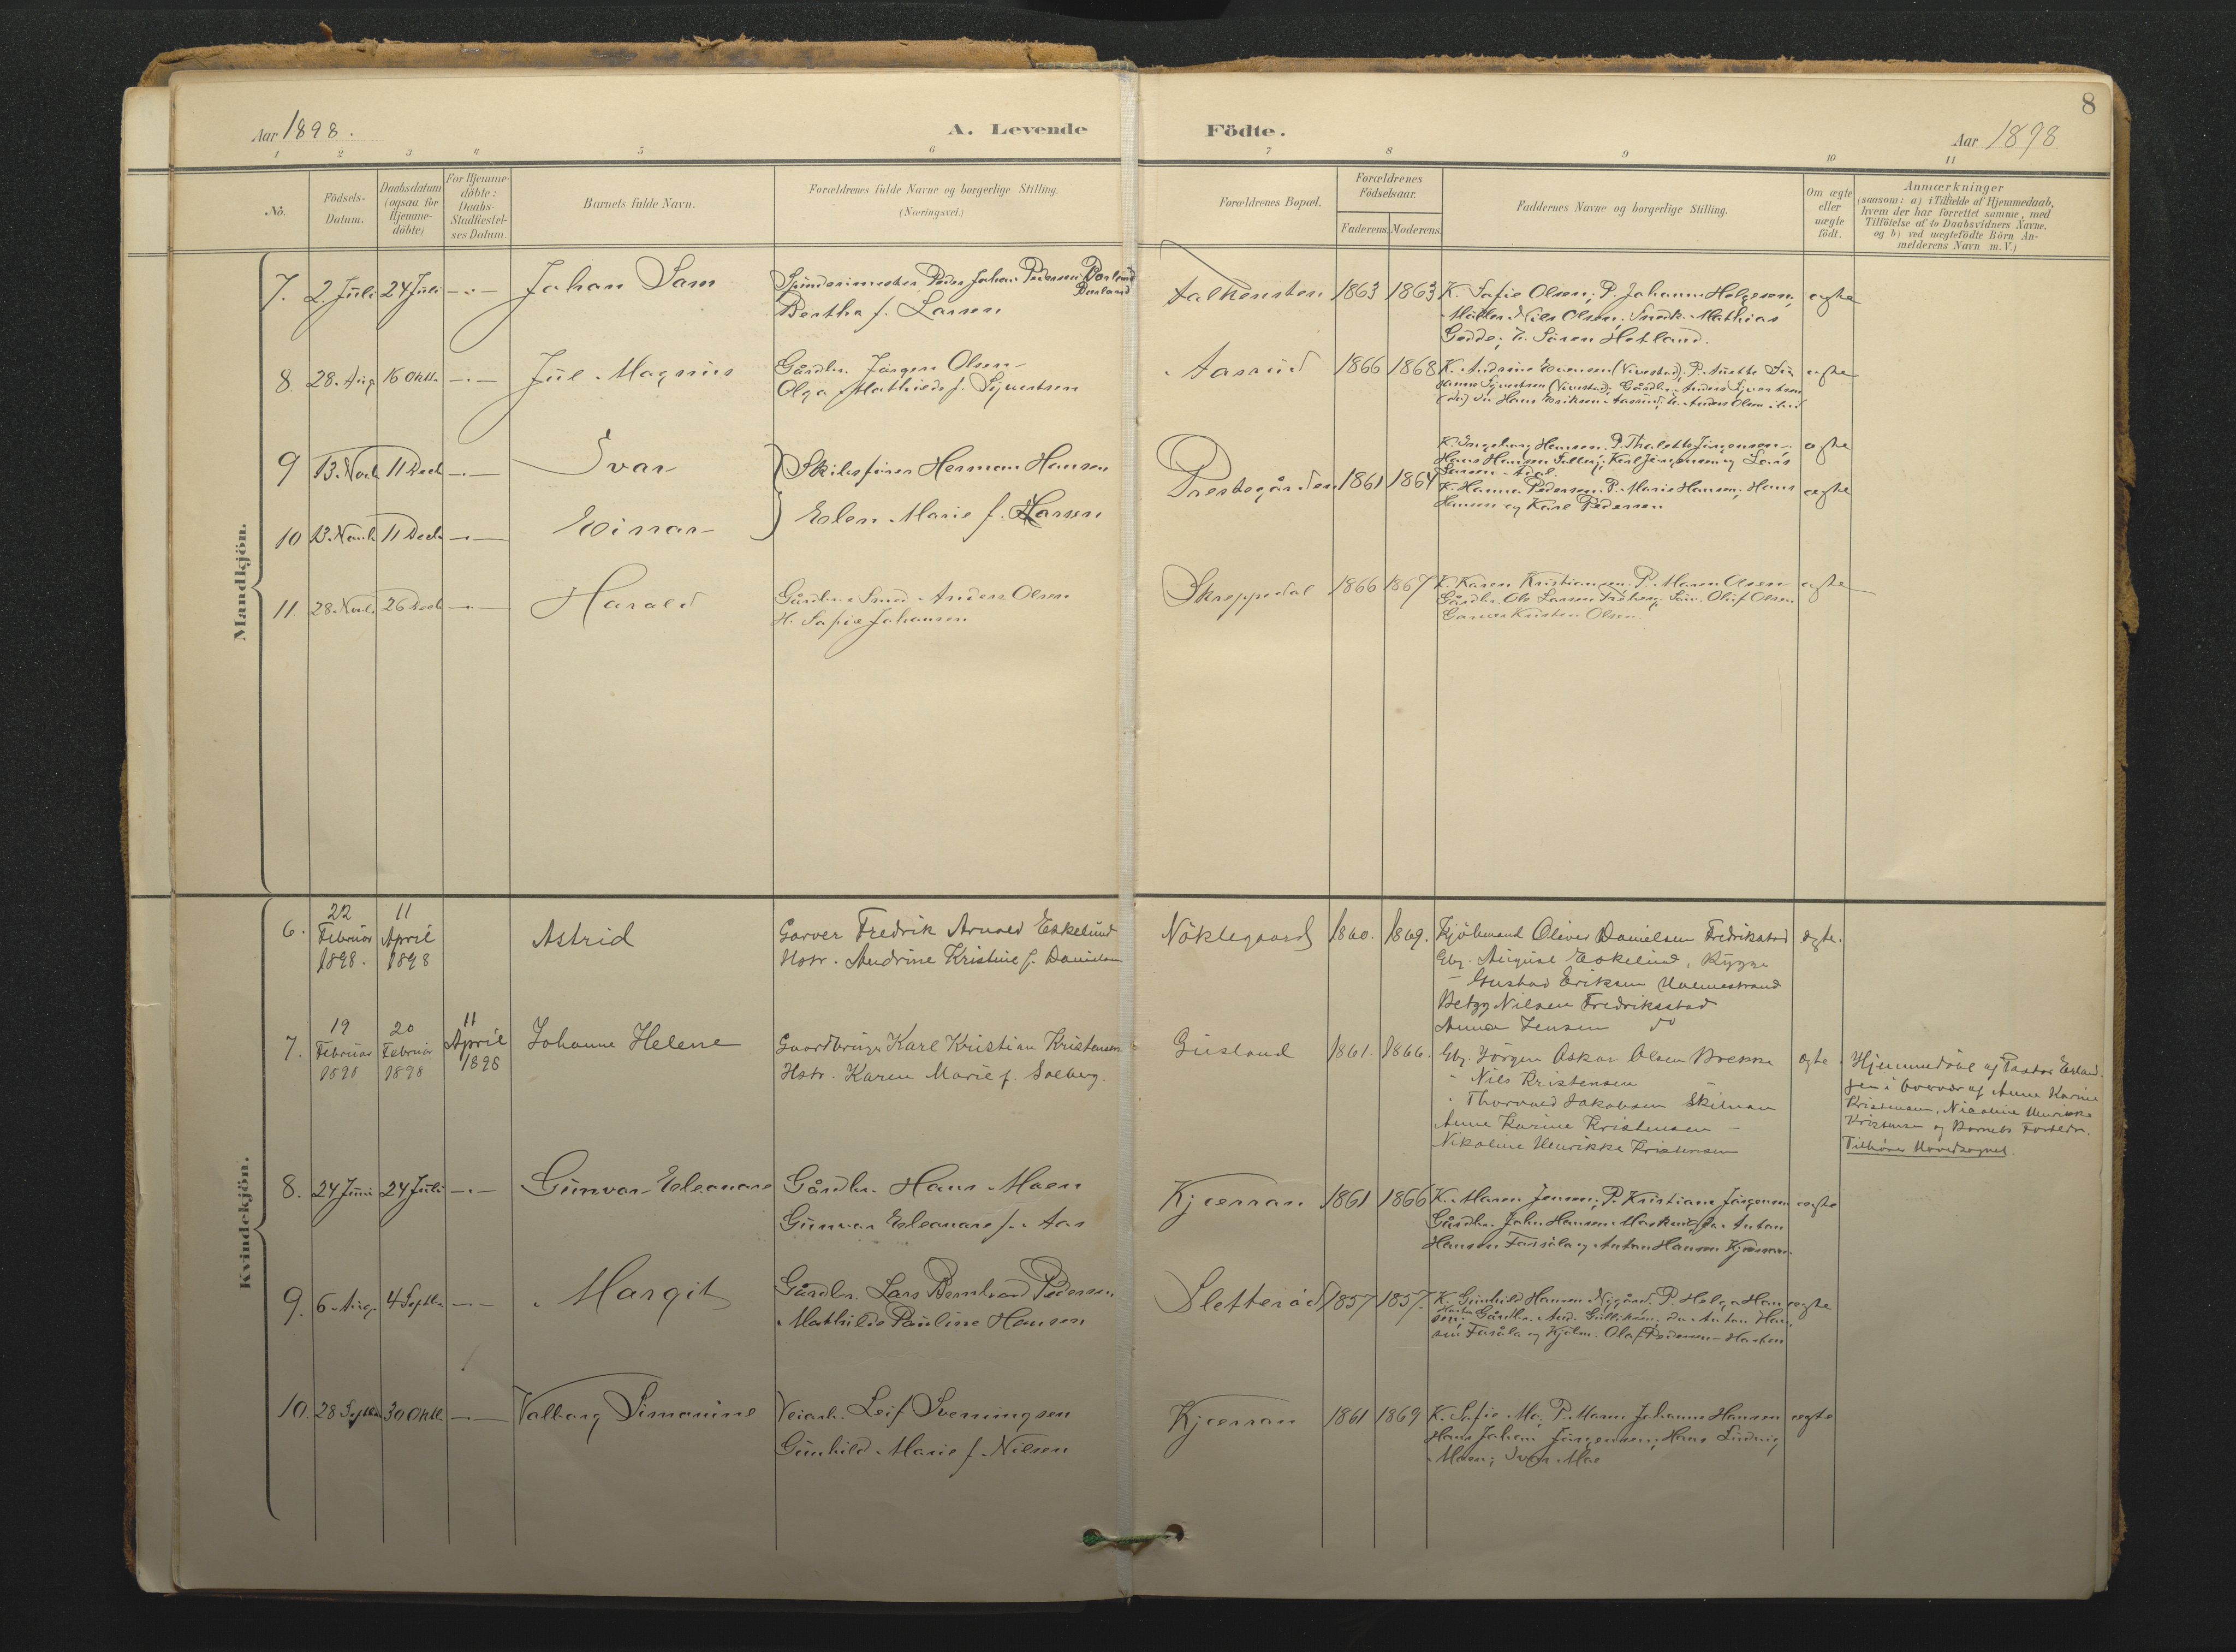 8
Aar 1898.
A. Levende
Födte.
Aar 1898
1 2 3 4 5 6 7 8 9 10 11
No.
Födsels-
Datum.
Daabsdatum
(ogsaa for
Hjemme-
döbte)
For Hjemme-
döbte:
Daabs-
Stadfæstel-
ses Datum.
Barnets fulde Navn.
Forældrenes fulde Navne og borgerlige Stilling.
(Næringsvei.)
Forældrenes Bopæl.
Forældrenes
Födselsaar.
Faderens. Moderens.
Faddernes Navne og borgerlige Stilling.
Om ægte
eller
uægte
födt.
Anmærkninger
(saasom: a) i Tilfælde af Hjemmedaab,
hvem der har forrettet samme, med
Tilföielse af to Daabsvidners Navne,
og b) ved uægtefödte Börn An-
melderens Navn m. V.)
Mandkjön.
7. 2. Juli 24 Juli -.- Johan
Spinderimester Peder Johan Pedersen
Bertha f. Larsen
Falkensten 1863 1863
K. Sofie Olsen; P. Johanne Helgesen;
Möller Nils Olsen; Snedk. Mathias
Gedde; Sören Hotland.
ægte
8 28. Aug 16 Oktbr -.- Jul Magnus
Gårdbr. Jörgen Olsen
Olga Mathilde f. Syvertsen
Aasrud 1866 1868
K. Andrine Evensen (Vivestad); P. Anette Su
sanne Syvertsen (Vivestad); Gårdbr. Anders Syvertsen
(do) do Hans Eriksen Aasrud; Anders Olsen ibid
ægte
9 13. Novb 11 Decb -.- Ivar
Skibsförer Herman Hansen
Elen Marie f. Larsen
Prestegården 1861 1864
K. Ingeborg Hansen. P. Thalette Jörgensen
Hans Hansen Karl Jörgensen og Lars
Larsen
ægte
10 13. Novb 11 Decb -.- Einar
K. Hanna Pedersen. P. Marie Hansen; Hans
Hansen og Karl Pedersen
ægte
11. 28. Novb. 26 Decb -.- Harald
Gårdbr. Smed Anders Olsen
H. Sofie Johansen
Skreppedal 1866 1867
K. Karen Kristiansen. P. Maren Olsen
Gårdbr. Ole Larsen Oluf Olsen
Garver Kristen Olsen.
ægte
Kvindekjön.
6. 22 Februar 1898. 11 April 1898
Astrid
Garver Fredrik Arnold Eskelund
Hstr. Andrine Kristine f. Danielsen
Nöklegaard 1860. 1869.
Kjöbmand Oliver Danielsen Fredrikstad
Gbr. August Eskelund, Rygge
- Gustav Eriksen Holmestrand
Betzy Nilsen Fredriksstad
Anna Jensen do
ægte.
7. 19 Februar 1898 20 Februar 1898 11 April 1898
Johanne Helene
Gaardbruger Karl Kristian Kristensen
Hstr. Karen Marie f. Solberg.
Gusland 1861. 1866.
Gbr. Jörgen Oskar Olsen Brekke
" Nils Kristensen -
" Thorvald Jakobsen Skilnan
Anne Karine Kristensen -
Nikoline Henrikke Kristensen
ægte.
Hjemmedöbt af Pastor Erland-
sen i Overvær af Anne Karine
Kristensen, Nicoline Henrikke
Kristensen og Barnets Forældre.
Tilhörer Hovedsognet.
8. 24 Juni 24 Juli -.- Gunvor Eleonore
Gårdbr. Hans Moen
Gunvor Eleonore f. Aas
Kjærran 1861 1866
K. Maren Jensen; P. Kristiane Jörgensen
Gårdbr. John Hansen Anton
Hansen Fossåla og Anton Hansen Kjærran
ægte
9. 6 Aug. 4 Septbr. -.- Margit
Gårdbr. Lars Bernhard Pedersen
Mathilde Pauline Hansen
Sletteröd 1857 1857.
K. Gunhild Hansen Nygård. P. Helga Han
sen. Gårdbr. And. Gulliksen; do Anton Han
sen Fossåla og Kjöbm. Olaf Pedersen
ægte
10. 28 Septbr 30 Oktb. -.- Valborg Simonine
Veiarb. Leif Sveningsen
Gunhild Marie f. Nilsen
Kjærran 1861 1869
K. Sofie Mo; P. Maren Johanne Hansen
Hans Johan Jörgensen; Hans Ludvig
Moen; Ivar Moe
ægte